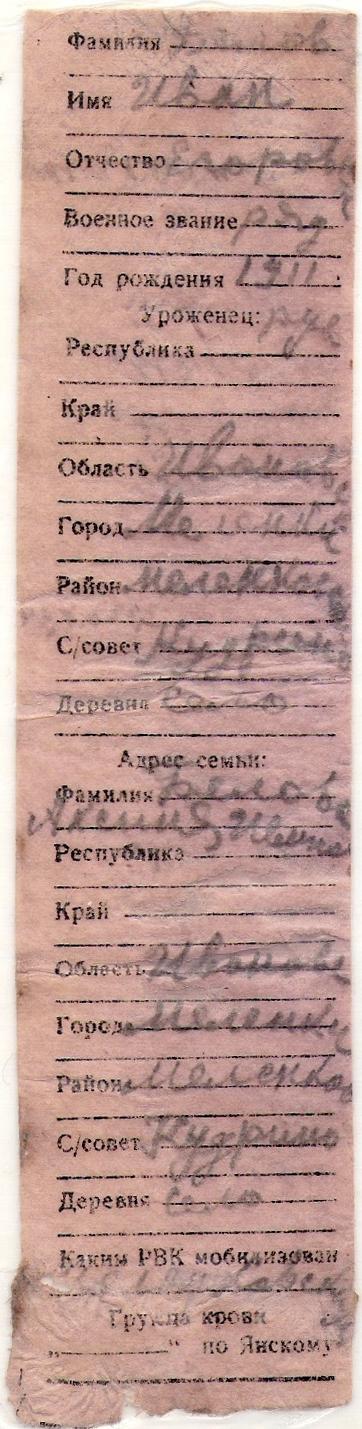 Фамилия Белов
Имя Иван
Отчество Егоров
Военное звание ряд
Год рождения 1911
Уроженец: рус
Республика
Край
Область Иванов
Город Меленки
Район Меленков
С/совет Кудрино
Деревня село
Адрес семьи:
Фамилия Белова
Республика
Край
Область Иванов
Город Меленки
Район Меленков
С/совет Кудрино
Деревня село
Каким РВК мобилизован
Группа крови
„ “ по Янскому